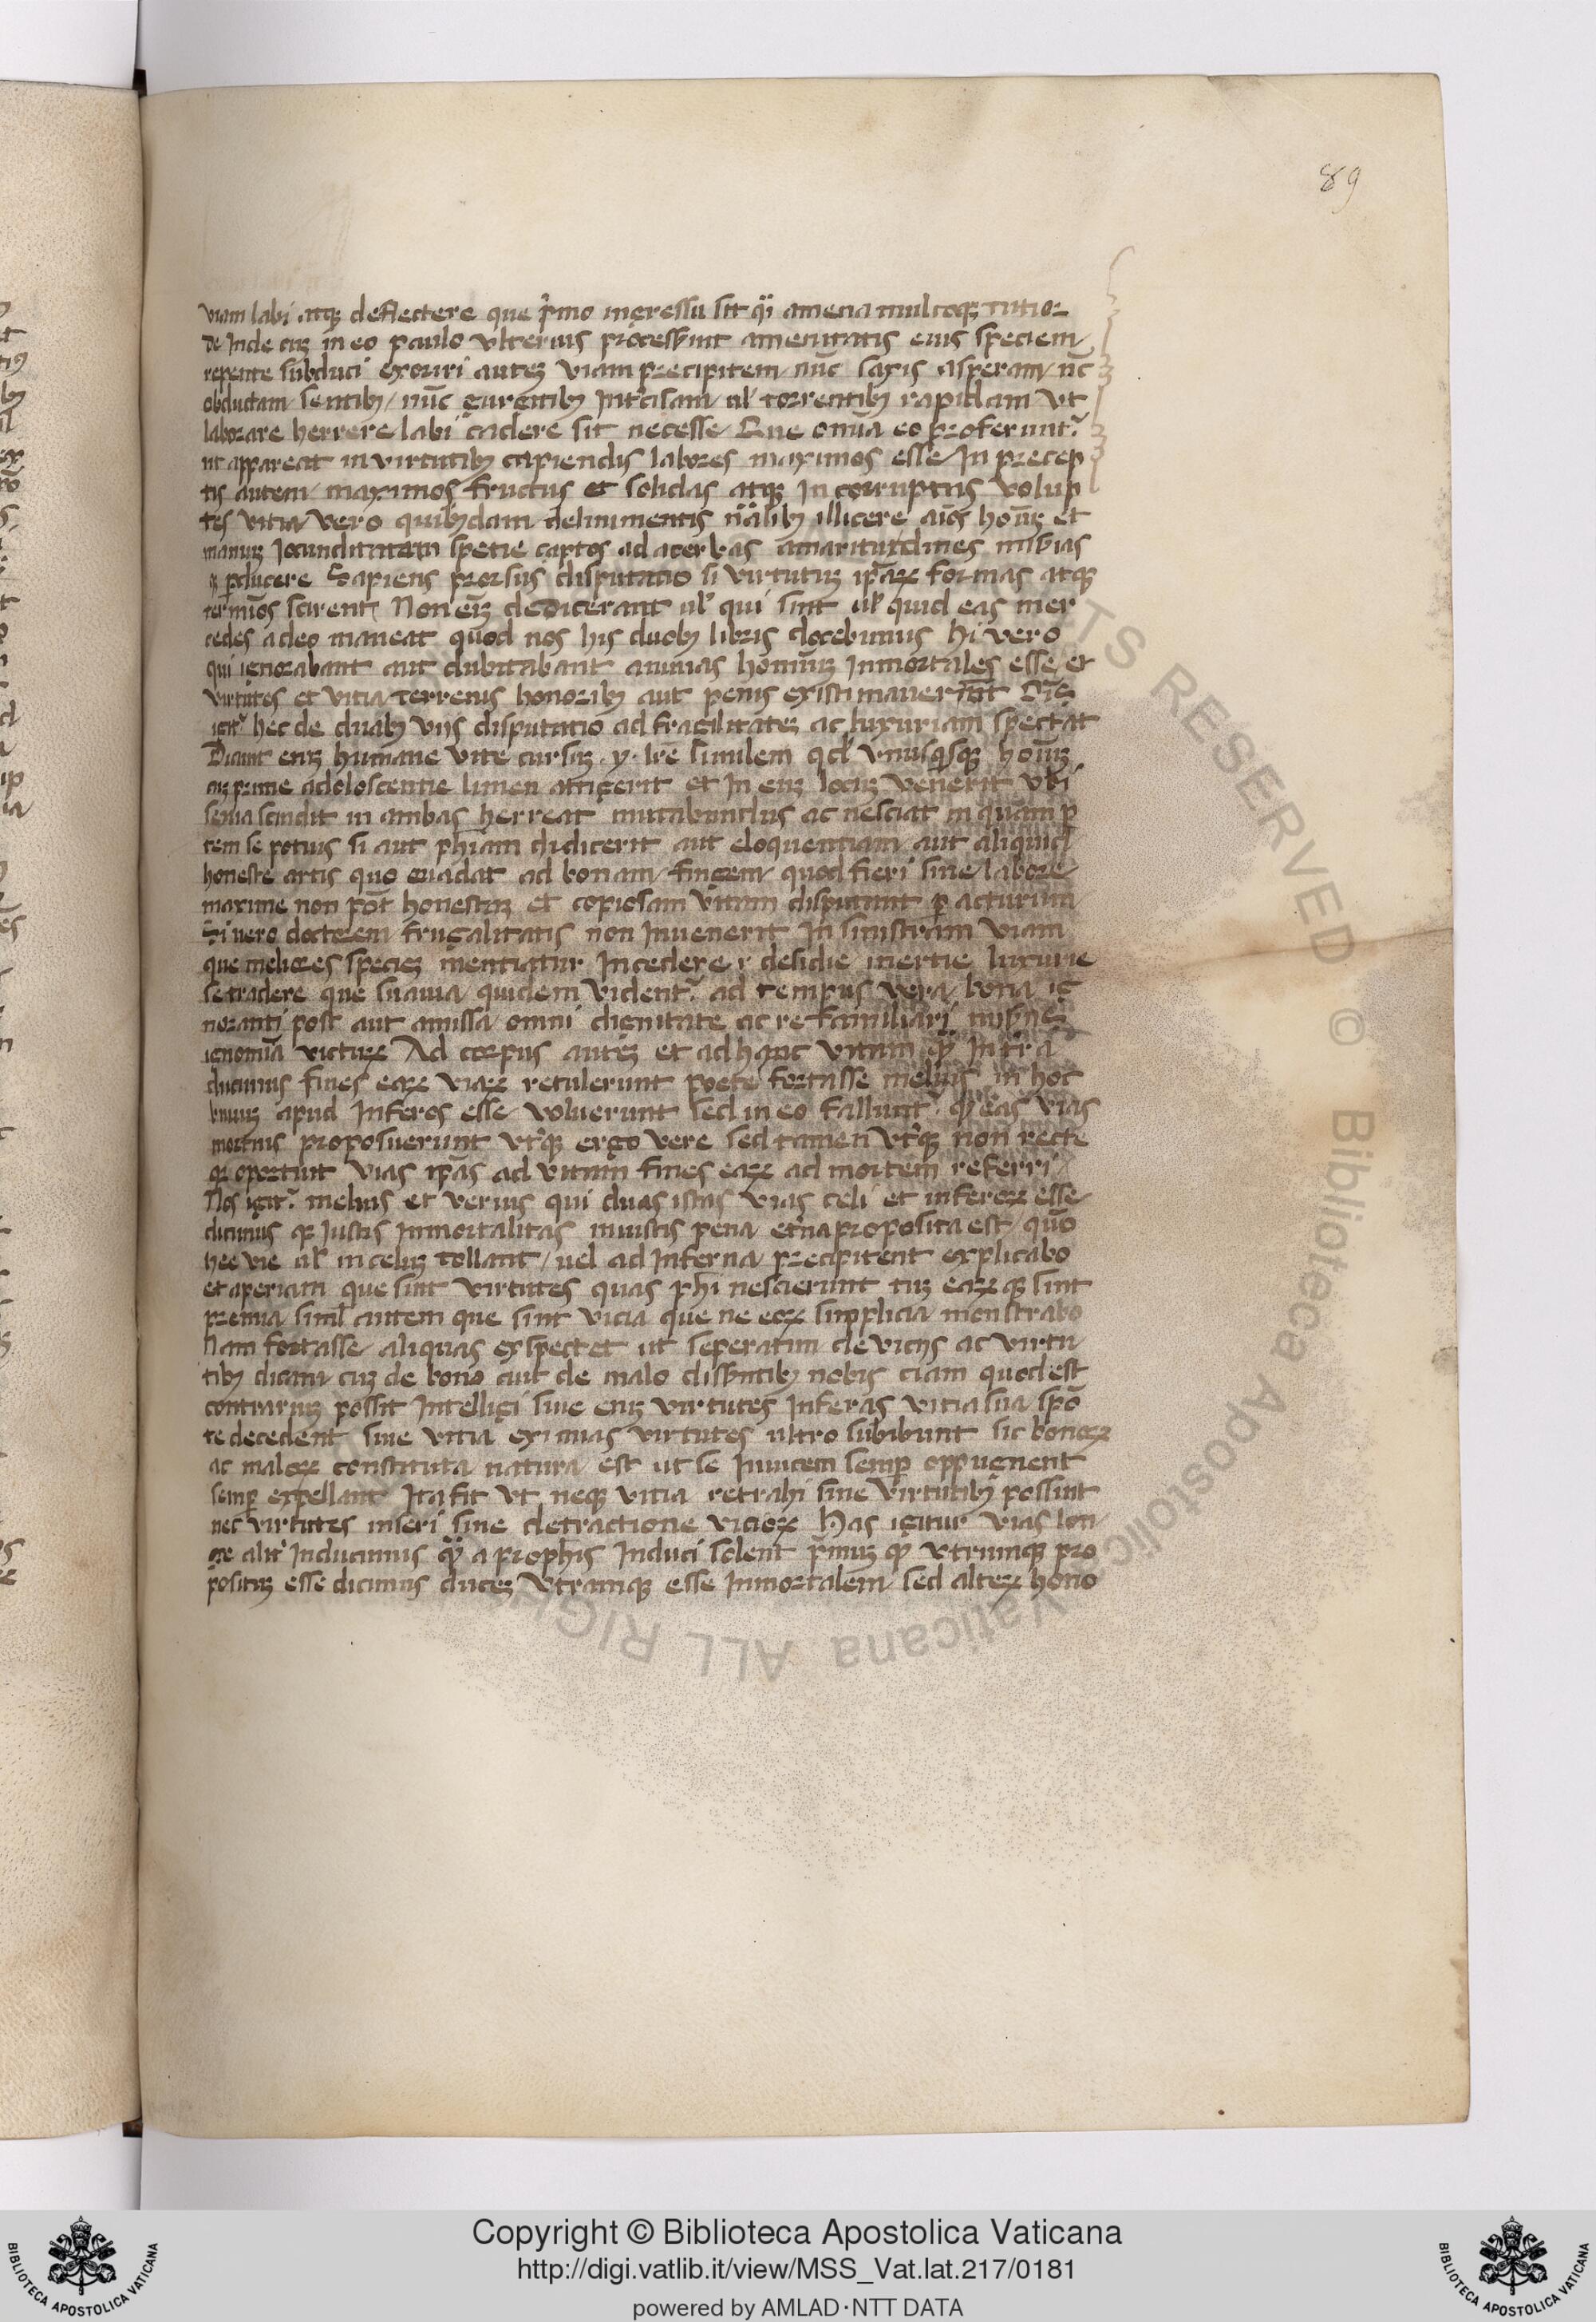 89
viam labi atqꝫ deflectere que pͥmo ingressu sit qͣi amena multoqꝫ tutior
de Inde cuꝫ in eo paulo ulterius processerint amenitatis eius speciem
repente subduci exoriri auteꝫ viam precipitem nūc saxis asperam nc̄
obductam sentibꝫ nūc gurgitibꝫ Intͥcisam ul' torrentibꝫ rapidam vt
laborare herrere labi cadere sit necesse Que om̄ia eo proferunt᷑
ut appareat in virtutibꝫ capiendis labores maximos esse In precep
tis autem maximos fructus et solidas atqꝫ In corruptas volup
tes vitia vero quibusdam delinimentis nāͣlibꝫ illicere aīos hoīuꝫ et
Iocunditatum spetie captos ad acerbas amaritudines
ꝑducere Sapiens prorsus disputatio si virtutuꝫ ip̄aꝝ formas atqꝫ
termīos scirent Non eīꝫ dedicerant ul' qui sint ul' quid eas mer
cedes a deo maneat quod nos his duobꝫ libris docebimus hi vero
qui ignorabant aut dubitabant animas hominuꝫ Inmortales esse et
virtutes et vitia terrenis honoribꝫ aut penis existimauerunt
igit᷑ hec de duabꝫ viis disputatio ad fragilitateꝫ ac luxuriam spectat
Dicunt eniꝫ humane vite cursuꝫ .y. lr̄e similem qd' vnusqͥsqꝫ hoīuꝫ
cuꝫ prime adoloscentie limen attigerit et In euꝫ locuꝫ venerit vbi
semia scindit in ambas herreat nutabundus ac nesciat in quam ꝑ
tem se potius si aut phīam didicerit aut eloquentiam aut aliquid
honeste artis quo euadat ad bonam fingem quod fieri sine labore
maxime non pōt honestuꝫ et copiosam vitam disputant ꝑ acturum
Si uero doctorem frugalitatis non Inuenerit In sinistram viam
que meliores specieꝫ mentiatur Incedere desidie inertie luxurie
se tradere que suauia quidem vident᷑ ad tempus vera bona ig
noranti post aut amissa omni dignitate ac re familiari
ignomīa victuꝝ Ad corpus auteꝫ et ad hanc vitam
ducimus fines eaꝝ viaꝝ retulerunt poete fortasse melius in hoc
biuiuꝫ apud Inferos esse voluerunt sed in eo fallunt᷑ qꝫ eas vias
mortuis proposuerunt vtͥqꝫ ergo vere sed tamen vtͥqꝫ non recte
qꝫ oportuit vias ip̄as ad vitam fines eaꝝ ad mortem referri
Nos igit᷑ melius et verius qui duas istas vias celi et inferoꝝ esse
dicimus qꝫ Iustis Inmortalitas iniustis pena etͥna proposita est quō
hee vie ul' in celuꝫ tollant uel ad Inferna precipitent explicabo
et aperiam que sint virtutes quas phi nescierunt tuꝫ eaꝝ qꝫ sint
premia simͥl autem que sint vicia que ne eoꝝ supplicia monstrabo
Nam fortasse aliquas exspectet ut seperatim de viciis ac virtu
tibꝫ dicam cuꝫ de bono aut de malo disserentibꝫ nobis etiam quod est
contrariuꝫ possit Intelligi siue eniꝫ virtutes Inferas vitia sua spō
te decedent siue vitia eximas virtutes ultro subibunt sic bonoꝝ
ac maloꝝ constituta natura est ut se Inuicem semꝑ oppugnent
semꝑ expellant Ita fit vt neqꝫ vitia retrahi sine virtutibꝫ possint
nec virtutes inseri sine detractione vicioꝝ Has igitur vias lon
ge alitͥ Inducimus qͣꝫ a prophis Induci solent pͥmuꝫ qꝫ vtrumqꝫ pro
positis esse dicimus duceꝫ vtramqꝫ esse Inmortalem sed alteꝝ hono
Copyright © Biblioteca Apostolica Vaticana
http://digi.vatlib.it/view/MSS_Vat.lat.217/0181
powered by AMLAD·NTT DATA
BIBLIOTECA APOSTOLICA VATICANA
BIBLIOTECA APOSTOLICA VATICANA